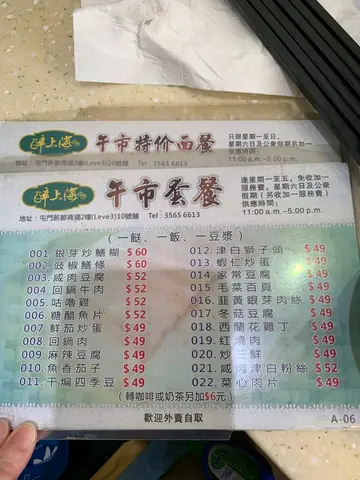 醉上海
午市特价面餐
只限星期一至日,
星期六日及公眾假期另加一
供應時間:
11:00 a.m.-5:00 p.m.
地址:屯門新都商場2樓(Level3)10號舖 Tel 3565 6613
醉上海
午市套餐
逢星期一至五,免收加一
服務費,星期六日及公眾
假期(另收加一服務費)
供應時間:
11:00a.m.-5:00p.m.
地址:屯門新都商場2樓(Leve3)10號舖 Tel:3565 6613
(一餸、一飯、一豆漿)
001. 銀芽炒鱔糊 $60
002. 豉椒鱔條 $60
003. 咸肉豆腐 $52
004. 回鍋牛肉 $52
005. 咕嚕雞 $52
006. 糖醋魚片 $52
007. 鮮茄炒蛋 $49
008. 回鍋肉 $49
009. 麻辣豆腐 $49
010. 魚香茄子 $49
011. 干煸四季豆 $49
012. 津白獅子頭 $49
013. 蝦仁炒蛋 $49
014. 家常豆腐 $49
015. 毛菜百頁 $49
016. 韮黃銀芽肉絲 $49
017. 冬菇豆腐 $49
018. 西蘭花雞丁 $49
019. 紅燒肉 $49
020. 炒三鮮 $49
021. 咸肉津白粉絲 $52
022. 菜心肉片 $49
(轉咖啡或奶茶另加$6元)
歡迎外賣自取
A-06